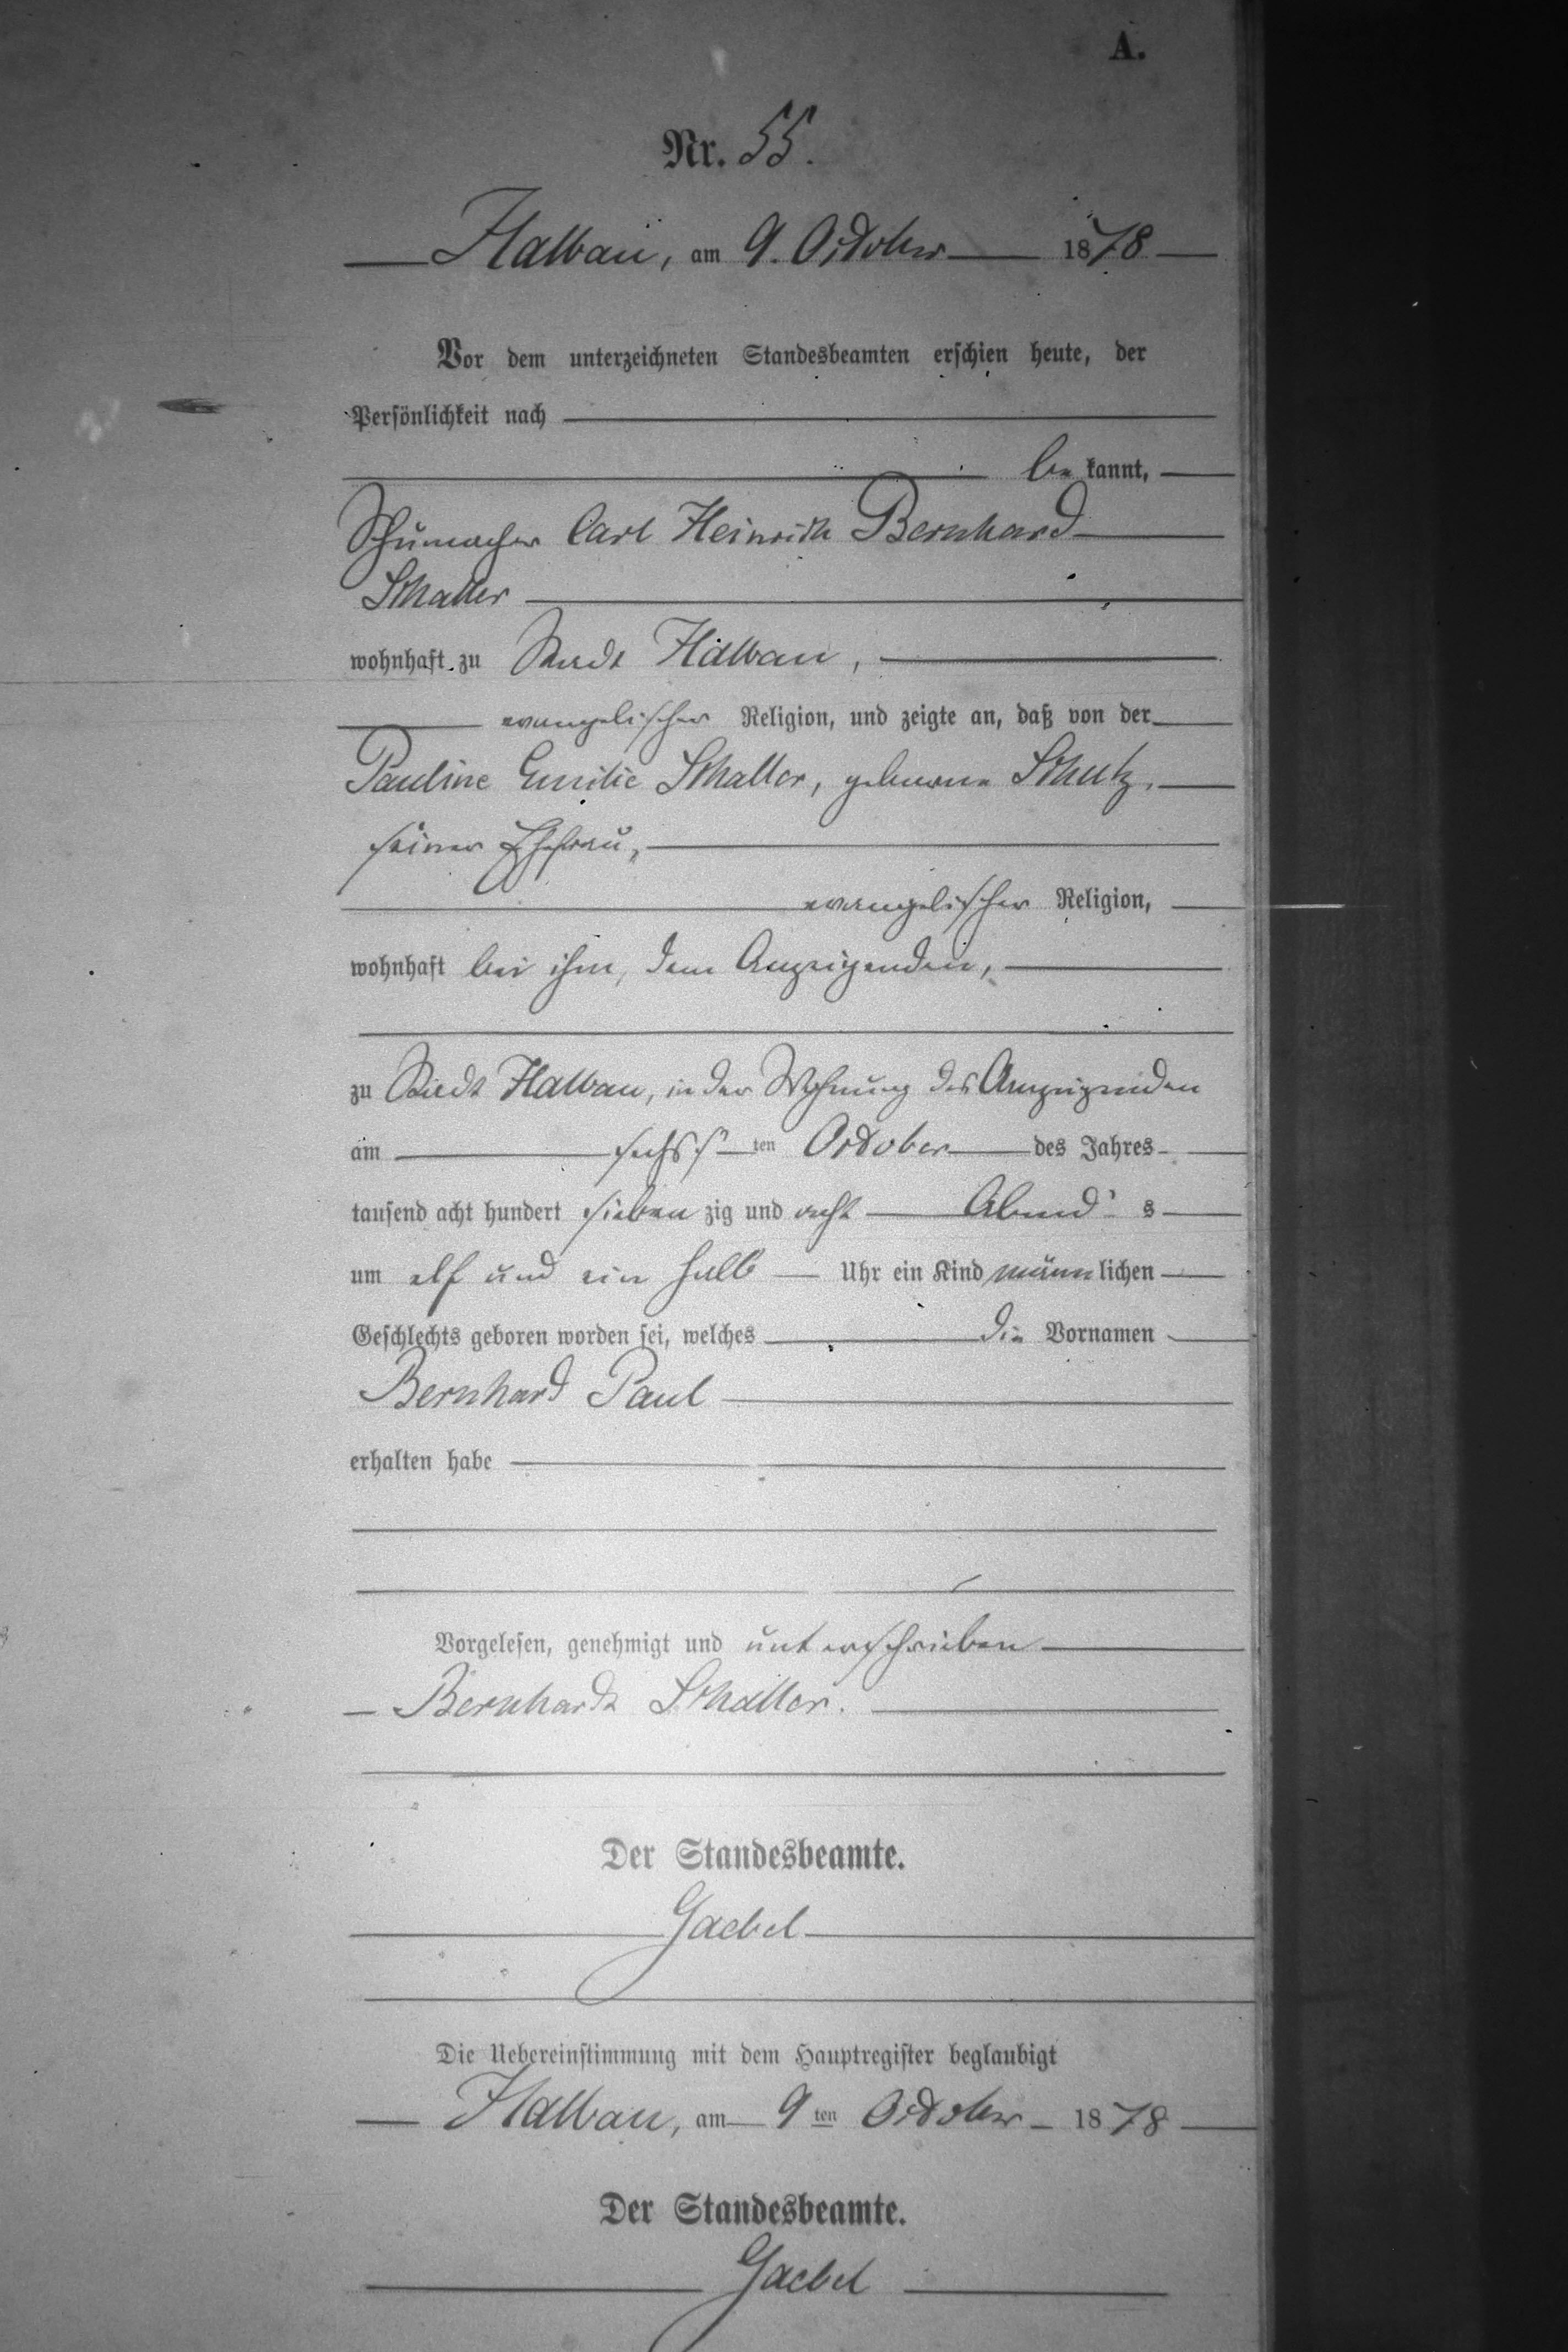 A.
Nr. 55.
Halbau, am 9. October 1878
Vor dem unterzeichneten Standesbeamten erschien heute, der
Persönlichkeit nach
be kannt,
Schumacher Carl Heinrich Bernhard
Schaller
wohnhaft zu Stadt Halbau,
evangelischer Religion, und zeigte an, daß von der
Pauline Emilie Schaller, geborene Schulz,
seiner Ehefrau,
evangelischer Religion,
wohnhaft bei ihm, dem Anzeigenden,
zu Stadt Halbau, in der Wohnung des Anzeigenden
am sechsten October des Jahres
tausend acht hundert sieben zig und acht Abends
um elf und ein halb Uhr ein Kind männlichen
Geschlechts geboren worden sei, welches die Vornamen
Bernhard Paul
erhalten habe
Vorgelesen, genehmigt und unterschrieben
Bernhardt Schaller.
Der Standesbeamte.
Gaebel
Die Uebereinstimmung mit dem Hauptregister beglaubigt
Halbau, am 9ten October 1878
Der Standesbeamte.
Gaebel